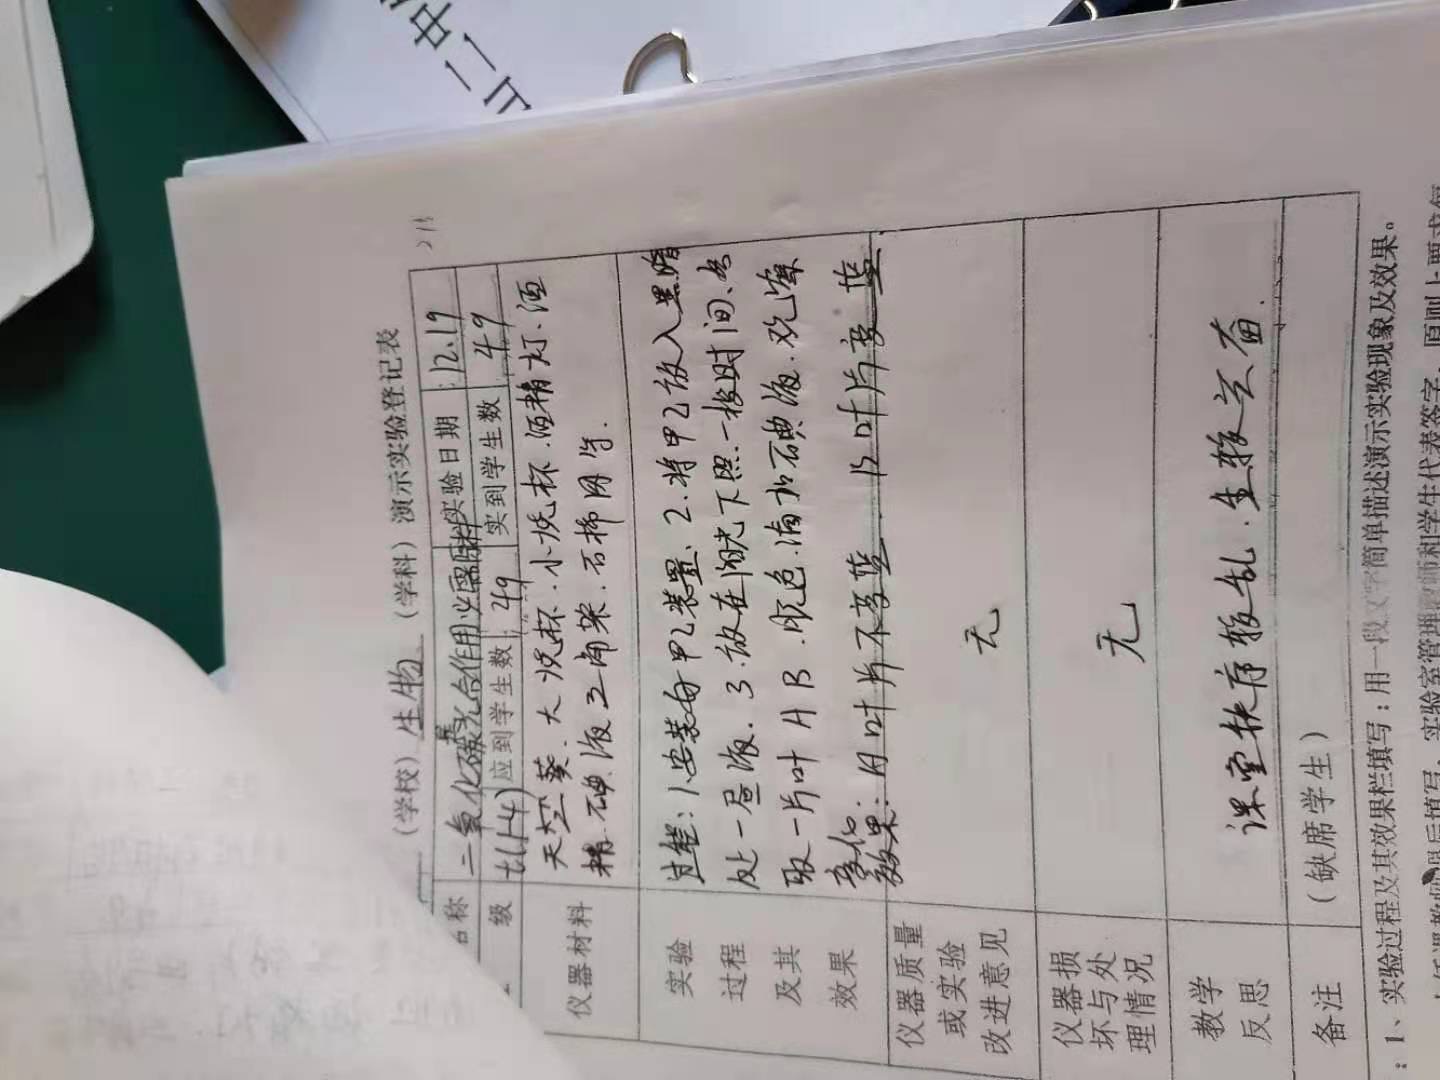 (学校) 生物 (学科) 演示实验登记表
名称 二氧化碳是光合作用必需原料 实验日期 12.19
级 七(14) 应到学生数 49 实到学生数 49
仪器材料
天竺葵、大烧杯、小烧杯、酒精灯、酒
精、碘液、三角架、石棉网等.
实验
过程
及其
效果
过程：1.安装好甲乙装置、2.将甲乙放入黑暗
处一昼夜. 3.放在阳光下照一段时间、各
取一片叶 A B .脱色.滴加碘液.观察
变化
效果：A叶片不变蓝 B叶片变蓝
仪器质量
或实验
改进意见
无
仪器损
坏与处
理情况
无
教学
反思
课堂秩序较乱.生较兴奋.
备注
(缺席学生)
：1、实验过程及其效果栏填写：用一段文字简单描述演示实验现象及效果。
课后填写，实验室管理教师和学生代表签字，原则上要求每